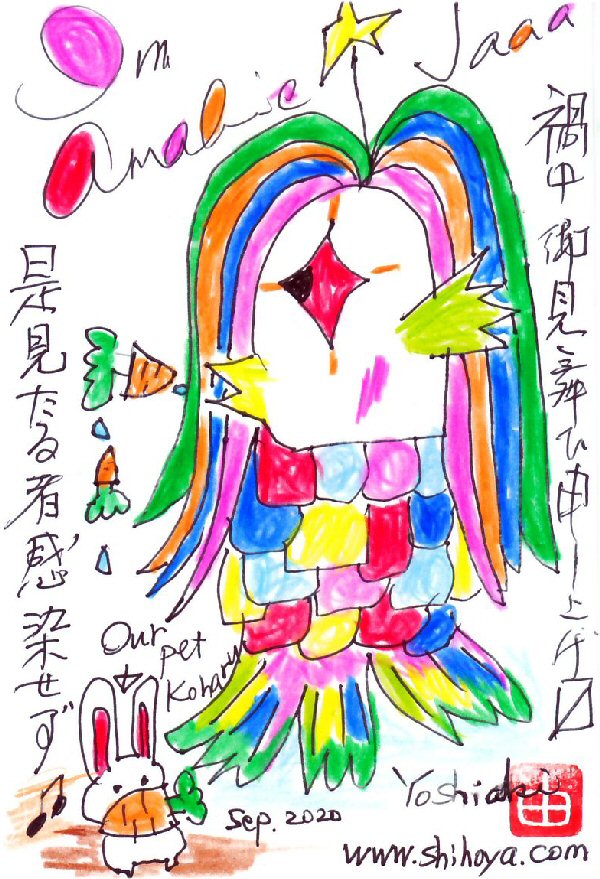 I'm
Amabie Jaaa
禍中御見舞ひ申し上げ〼
是見たる者感染せず♫
Our
pet
Koharu
Sep. 2020
Yoshiaki
由
www.shihoya.com